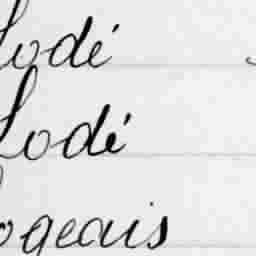 Lodé
Lodé
ogeais